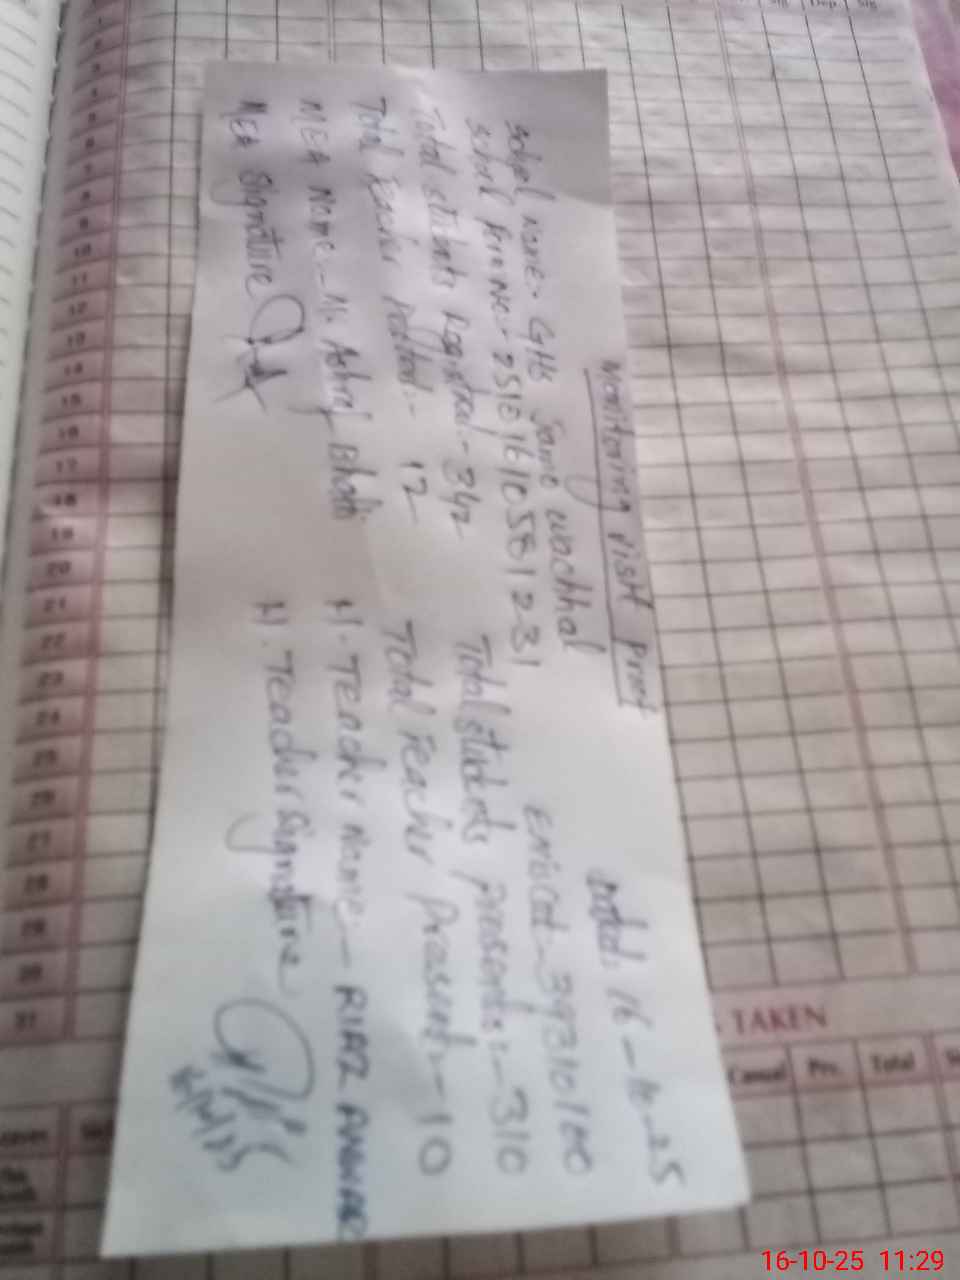 Monitoring visit Proof
Dated: 16-10-25
School name:- GHS Samo wachhal
School
EMISCod- 39310100
Total students Registred- 342 Total students presents:- 310
Total Teacher Posted:- 12 Total Teacher Present- 10
MEA Name:- M. Ashraf Bhatti H. Teacher Name:- RIAZ ANWAR
MEA Signature H. Teacher Signature
16/10/25
1
2
3
4
5
6
7
8
9
10
11
12
13
14
15
16
17
18
19
20
21
22
23
24
25
26
27
28
29
30
31
TAKEN
Casual Prv. Total
Dep. Sig.
16-10-25 11:29